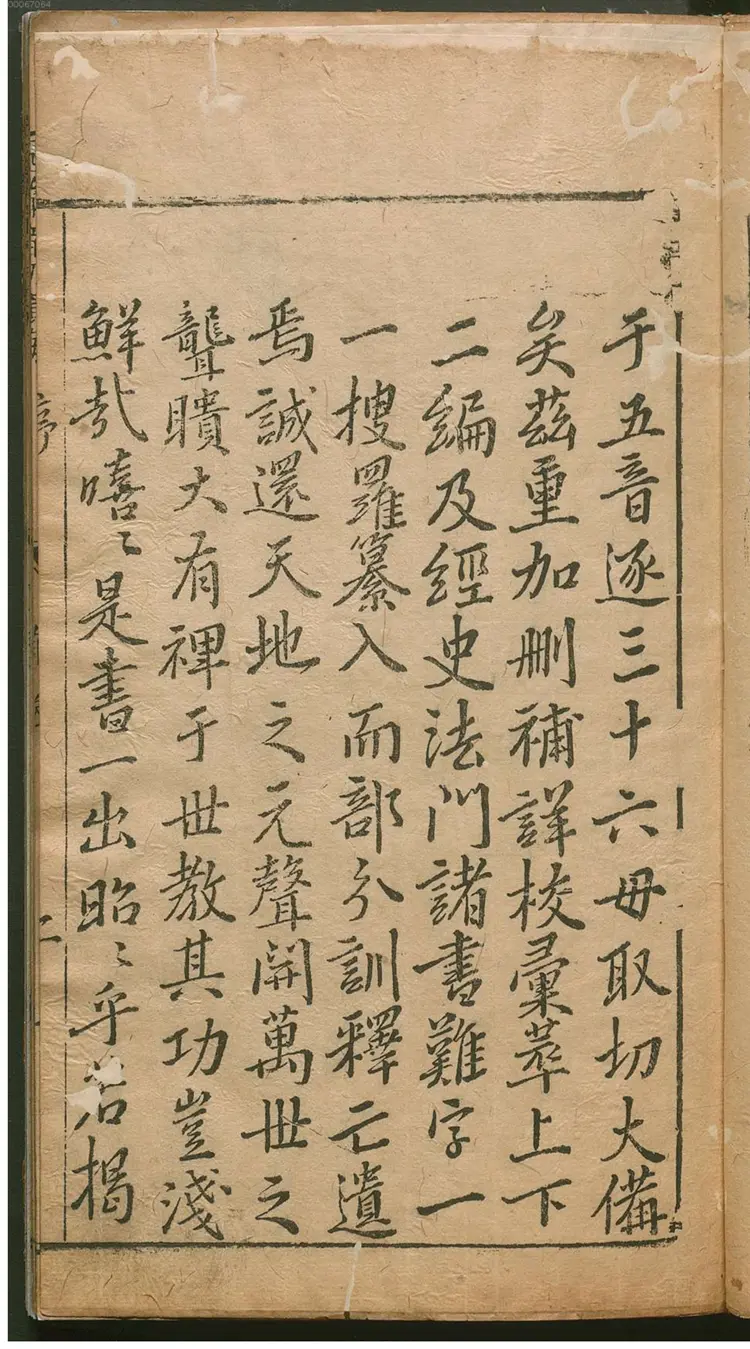 00067064
于五音逐三十六毋取切大備
矣茲重加刪補詳校彚萃上下
二編及經史法門諸書難字一
一搜羅纂入而部分訓釋亡遺
焉誠還天地之元聲開萬世之
聾瞶大有裨于世教其功豈淺
鮮哉嘻〻是書一出昭〻乎若揭
序
二